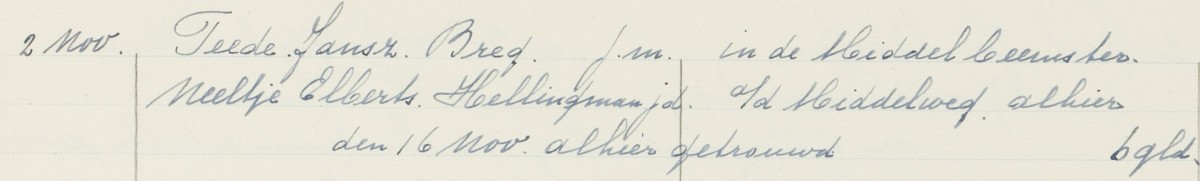 2 Nov. Teede Jansz. Breg. j.m. in de Middel beemster.
Neeltje Elberts. Hellingman jd. o/d Middelweg. alhier
den 16 Nov. alhier getrouwd 6 gld.